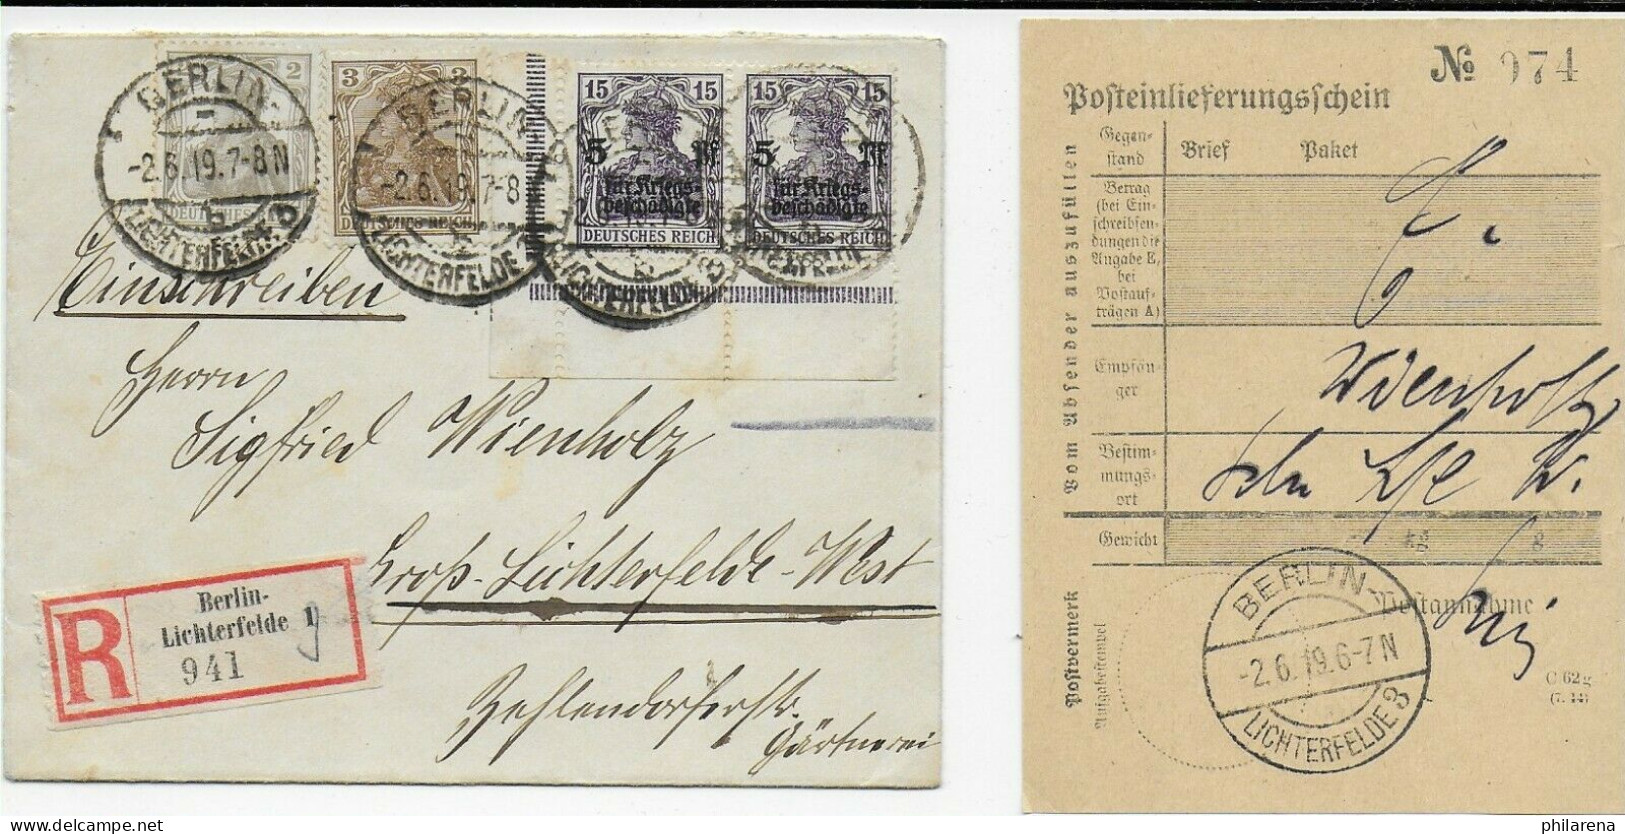 2
3 3
DEUTSCHES REICH
15 15
5 Pf
für Kriegs-
beschädigte
DEUTSCHES REICH
15 15
5 Pf
für Kriegs-
beschädigte
DEUTSCHES REICH
BERLIN-
-2.6.19.7-8N
LICHTERFELDE
BERLIN-
-2.6.19.7-8
LICHTERFELDE
LICHTERFELDE
Einschreiben
Herrn
Sigfried Wienholz
Groß-Lichterfelde-West
Zehlendorferstr.
Gärtnerei
R
Berlin-
Lichterfelde 1
941
№ 974
Posteinlieferungsschein
Vom Absender auszufüllen
Gegen-
stand
Brief Paket
Betrag
(bei Ein-
schreibsen-
dungen die
Angabe E,
bei
Postauf-
trägen A)
E.
Empfän-
ger
Wienholz
Bestim-
mungs-
ort
Gewicht
kg g
Postvermerk
Aufgabestempel
Postannahme
BERLIN-
-2.6.19.6-7N
LICHTERFELDE 3
C 62g
(7. 14)
philarena.com